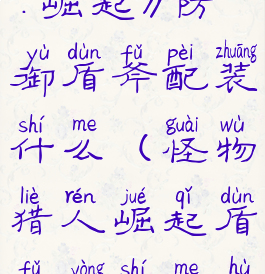 ·崛起//防
yù dùn fǔ pèi zhuāng
御盾斧配装
shí me guài wù
什么（怪物
liè rén jué qǐ dùn
猎人崛起盾
fǔ yòng shí me hù